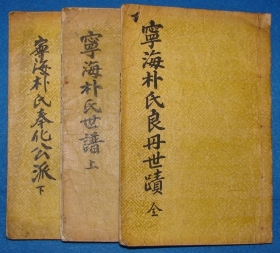 寧海朴氏良丹世蹟 全
寧海朴氏世譜 上
寧海朴氏奉化公派 下